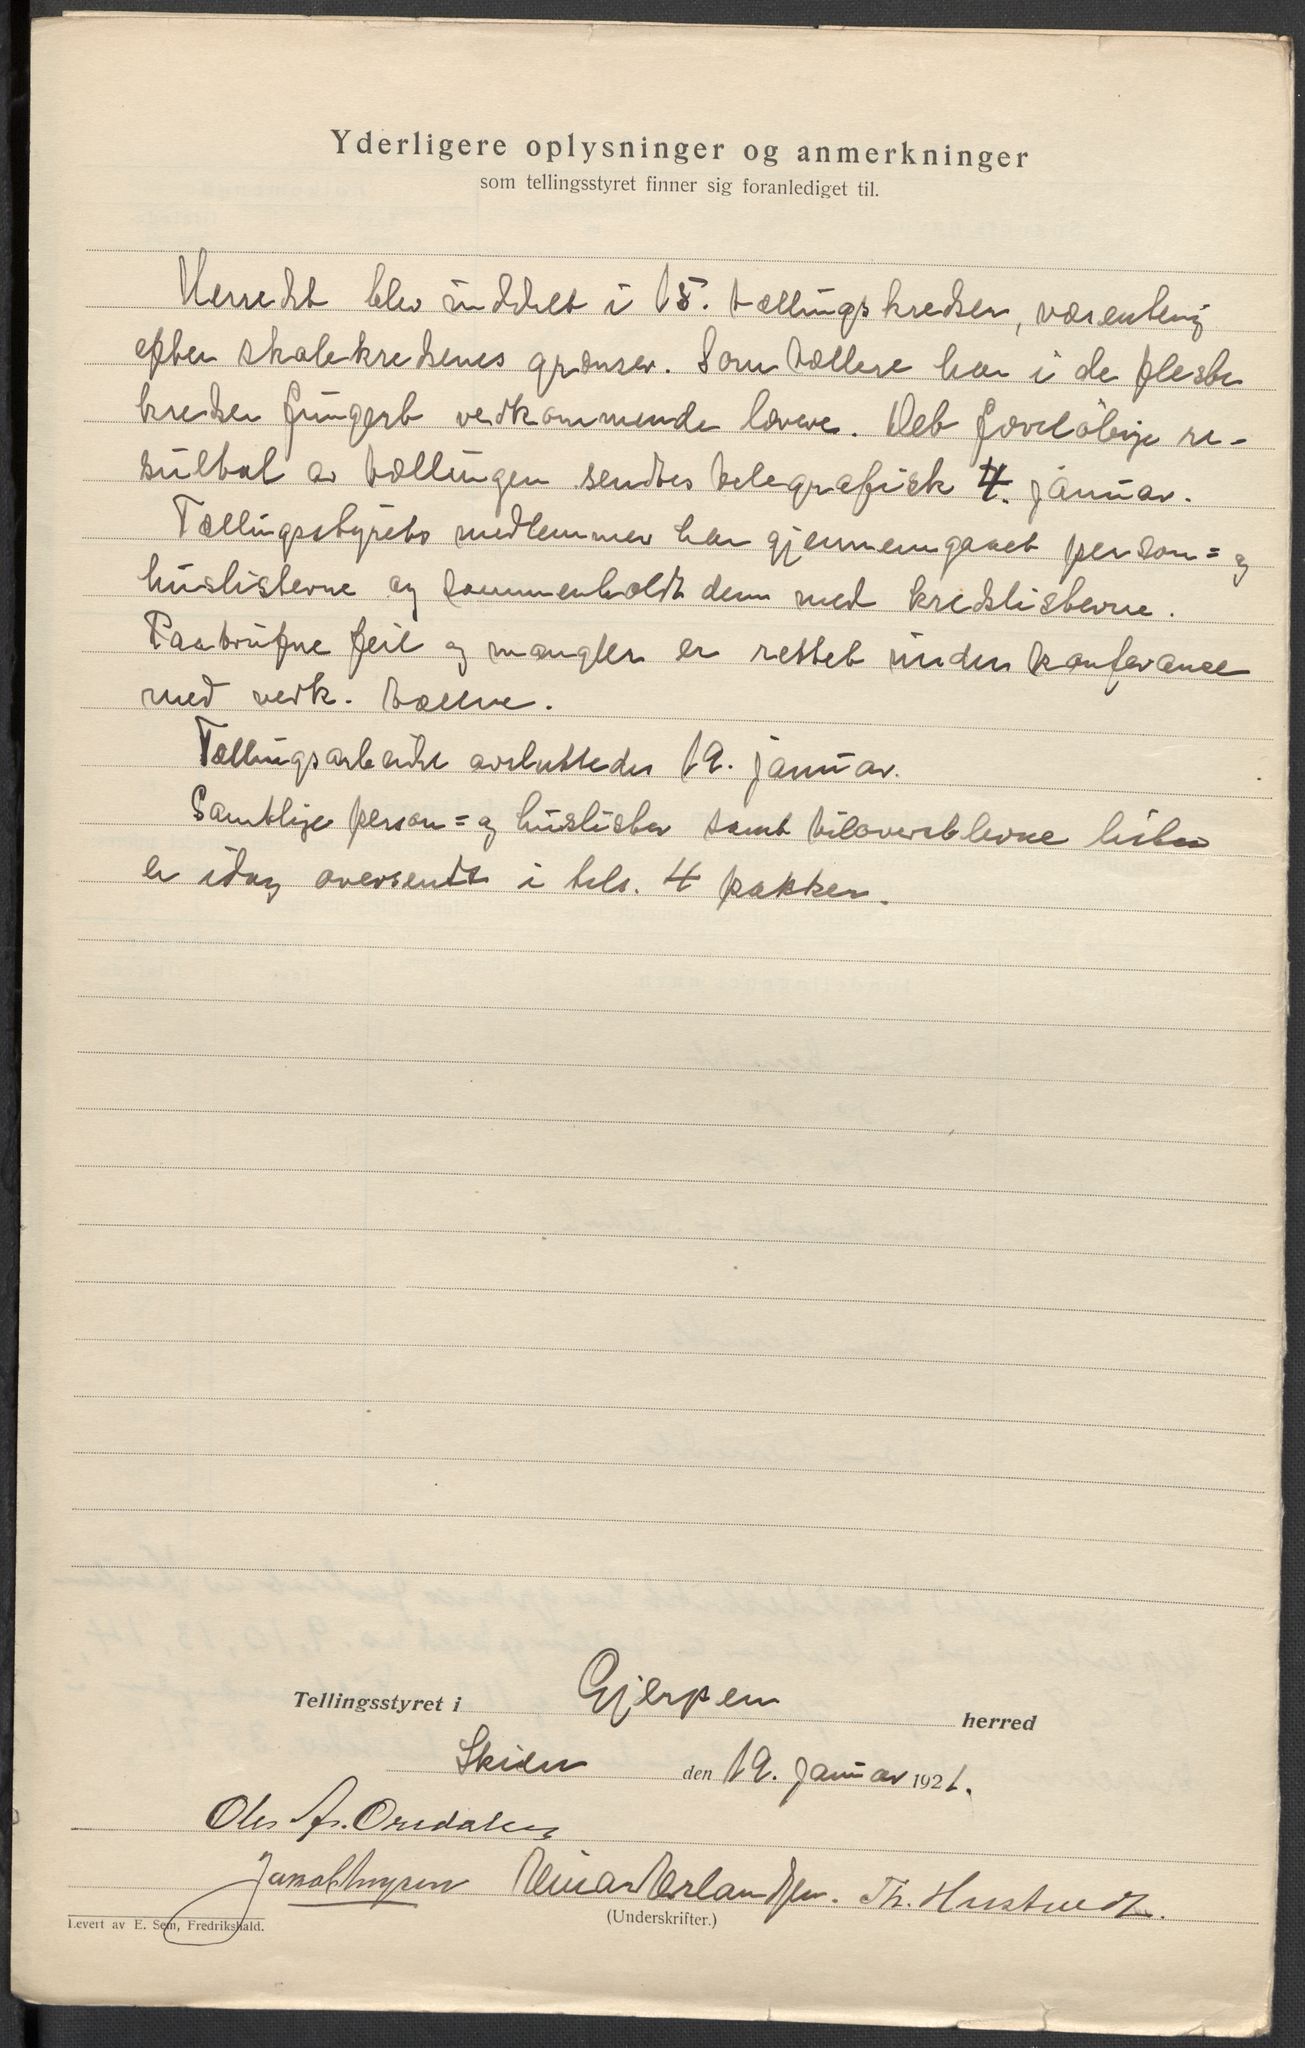 Yderligere oplysninger og anmerkninger
som tellingsstyret finner sig foranlediget til.
Herredet blev inddelt i 15. tællingskredser, væsentlig
efter skolekredsenes grænser. Som tællere har i de fleste
kredser fungert vedkommende lærere. Det foreløbige re-
sultat av tællingen sendtes telegrafisk 4. januar.
Tællingsstyrets medlemmer har gjennemgaaet person= og
huslisterne og sammenholdt dem med kredslisterne.
Paatrufne feil og mangler er rettet under konferance
med vedk. tællere.
Tællingsarbeidet avsluttedes 19. januar.
Samtlige person= og huslister samt tiloversblevne lister
er idag oversendt i tils. 4 pakker.
Tellingsstyret i Gjerpen herred
Skien den 19. januar 1921.
Ole
Einar Erlandsen. Th. Hustvedt.
(Underskrifter.)
Levert av E. Sem, Fredrikshald.